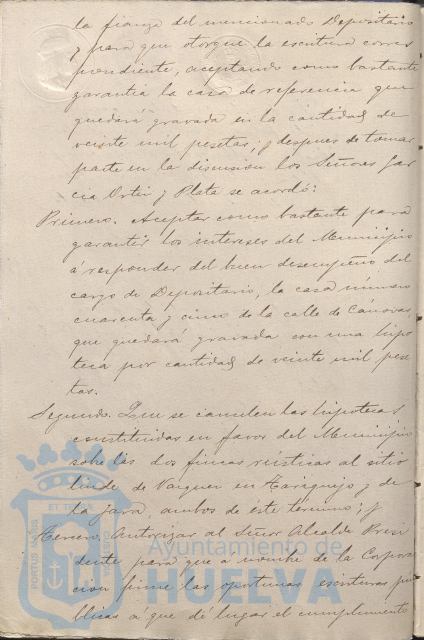 la fianza del mencionado Depositario
y para que otorgue la escritura corres
pondiente, aceptando como bastante
garantia la casa de referencia que
quedará gravada en la cantidad de
veinte mil pesetas; y despues de tomar
parte en la discusion los Señores Gar
cia Ortiz y Plata se acordó:
Primero. Aceptar como bastante para
garantir los intereses del Municipio
á responder del buen desempeño del
cargo de Depositario, la casa número
cuarenta y cinco de la calle de Cánovas
que quedará gravada con una hipo
teca por cantidad de veinte mil pese
tas.
Segundo. Que se cancelen las hipotecas
constituidas en favor del Municipio
sobre las dos fincas rústicas al sitio
linde de en y de
la Jara, ambos de éste termino; y
Tercero. Autorizar al Señor Alcalde Presi
dente para que a nombre de la Corpora
cion firme las oportunas escrituras pu
blicas á que dé lugar el cumplimento
Ayuntamiento de
HUELVA
PORTUS MARIS
ET TERRÆ